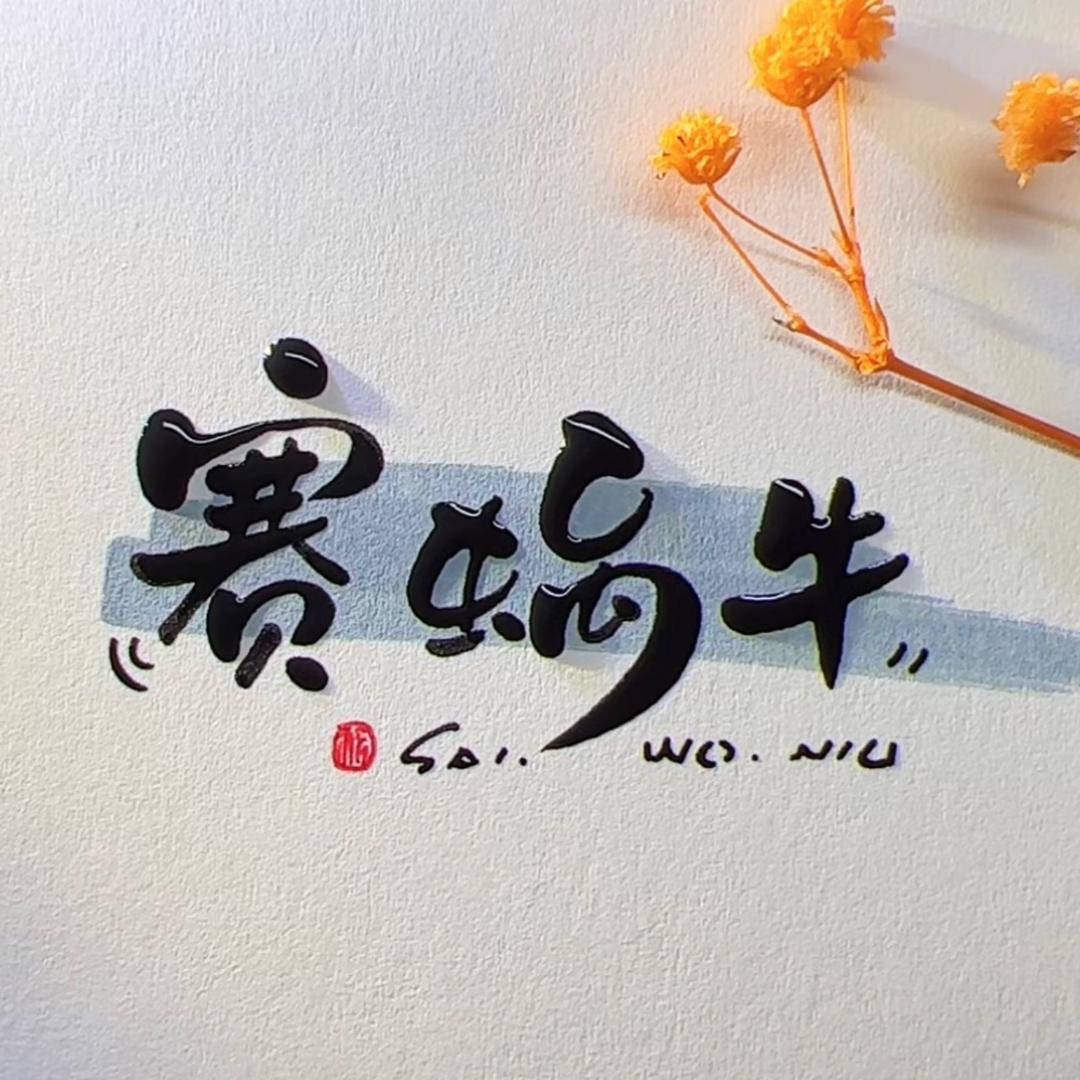 赛蜗牛
SAI. WO. NIU